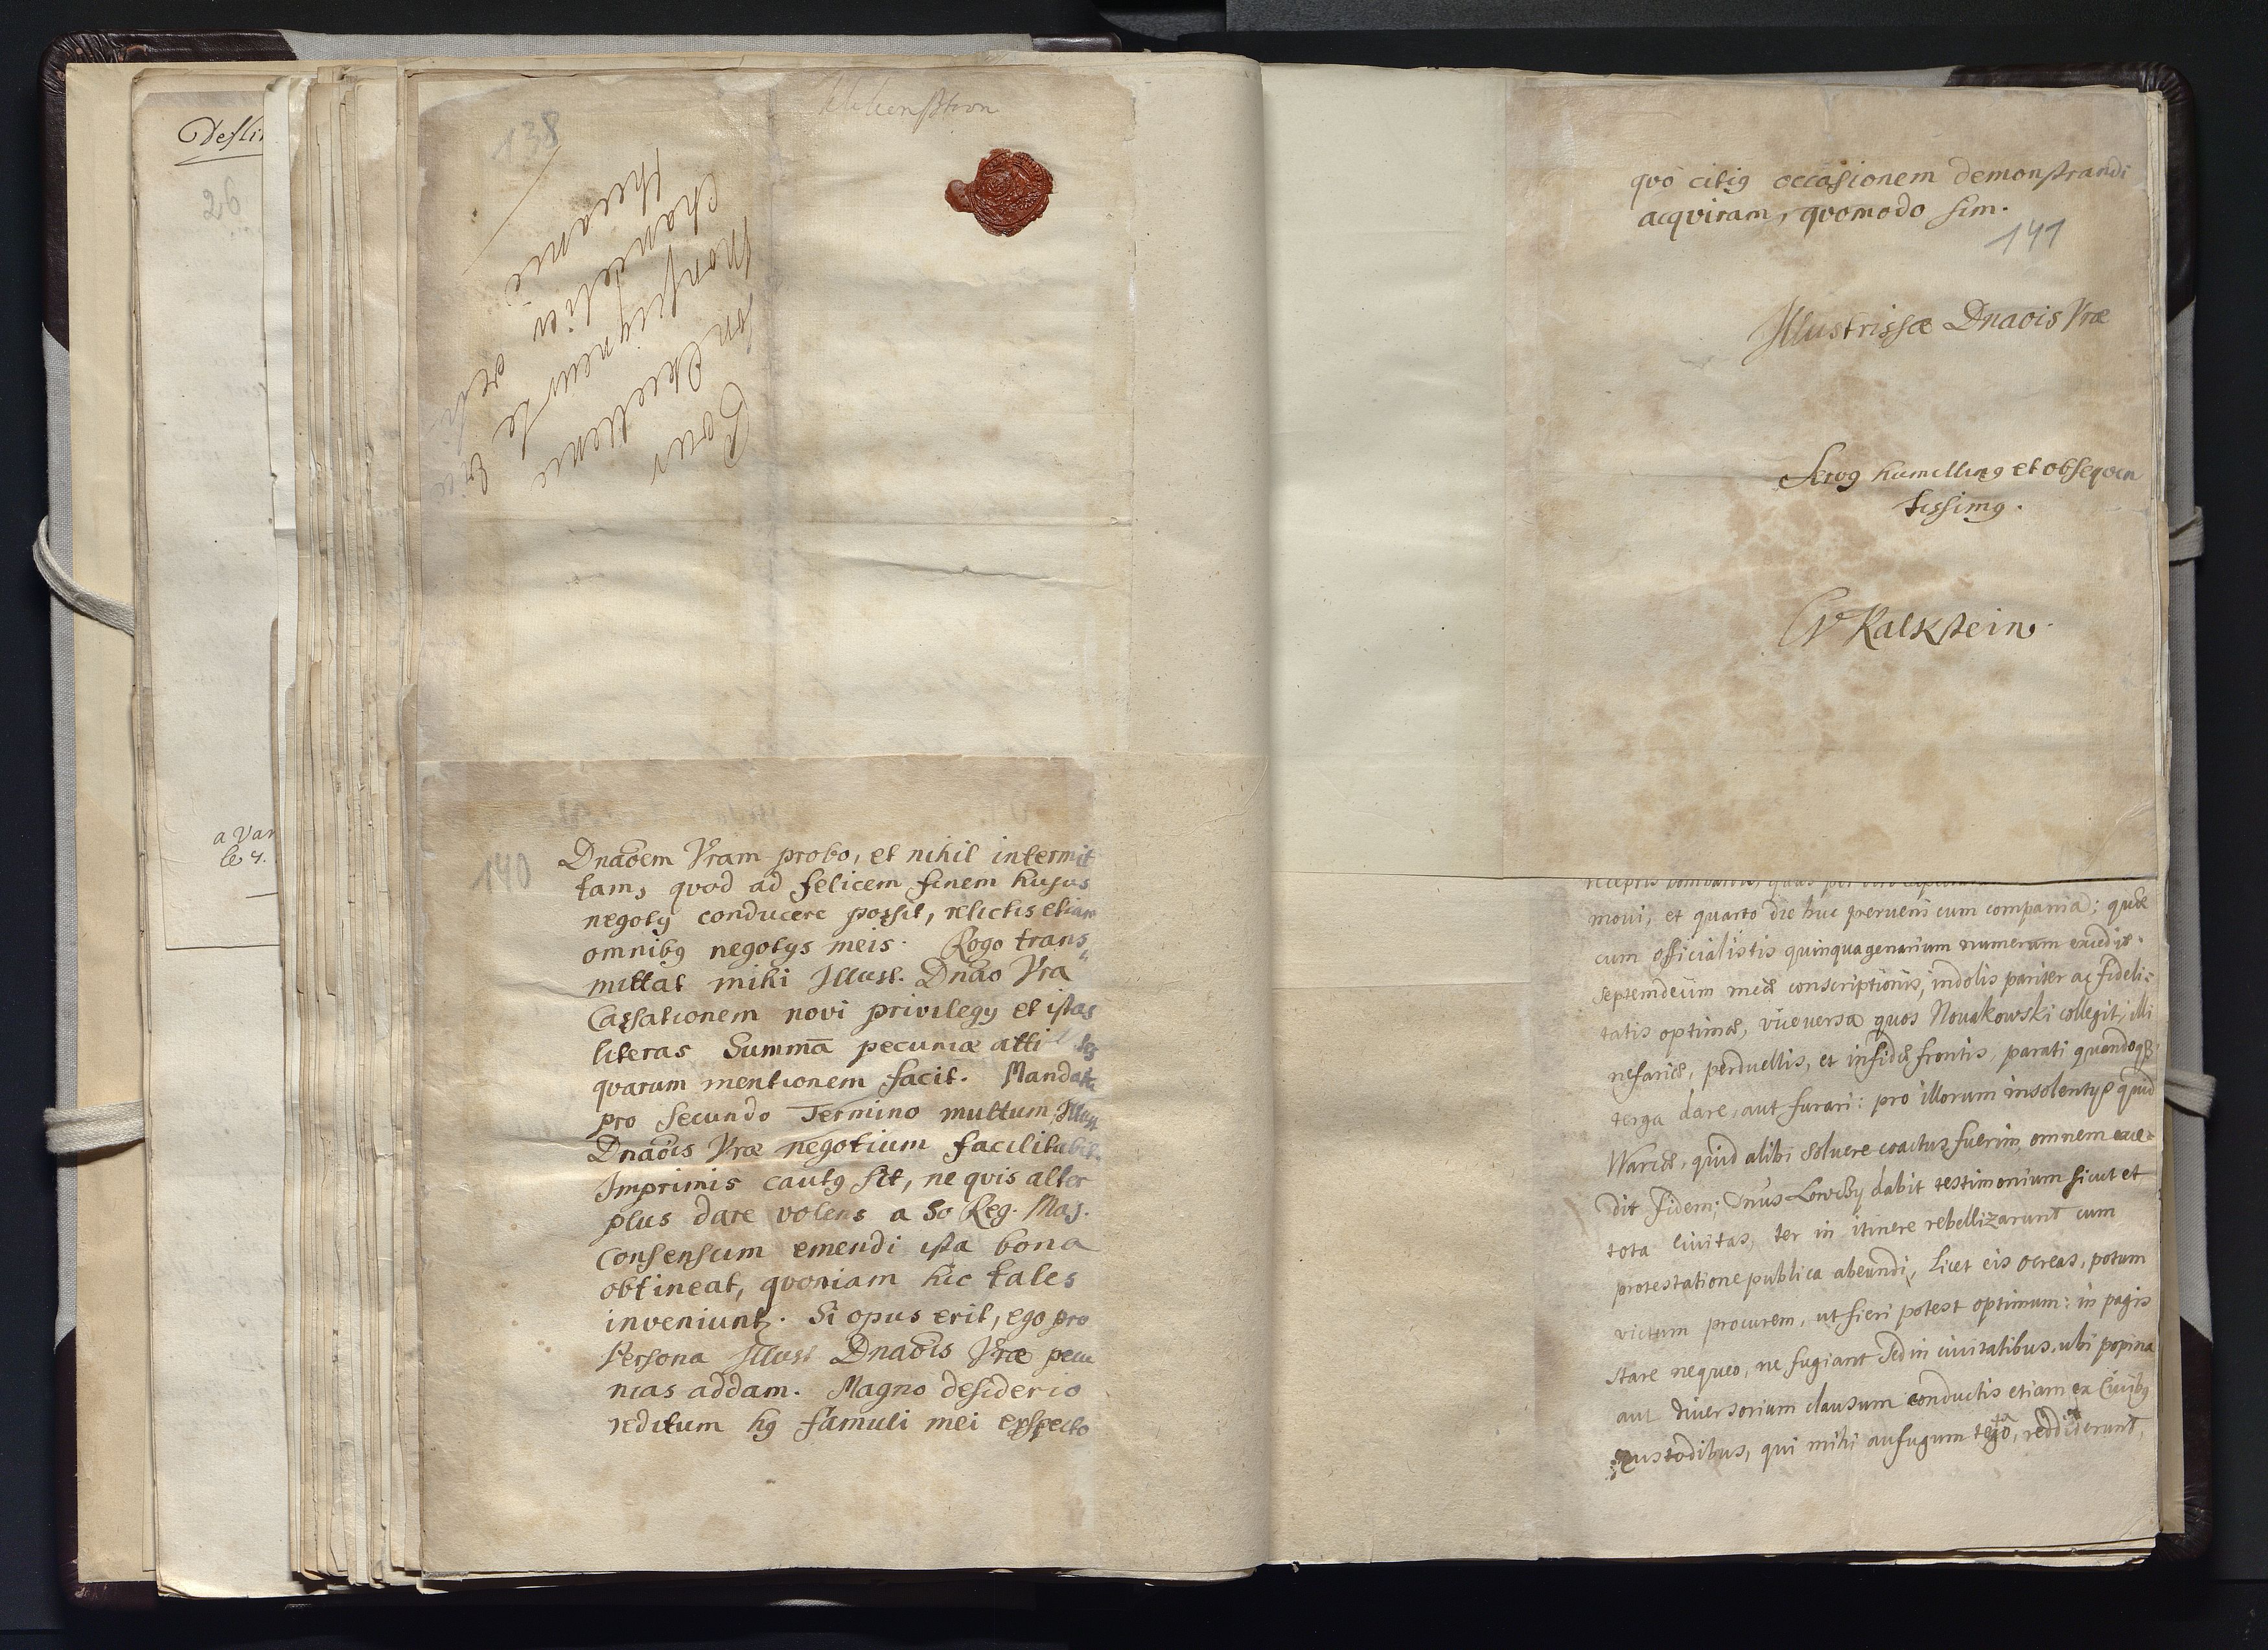 26
a Var
le 4.
138
Pour
Son Excellence
Monseigneur le
Chancelier
140
Dnãoem Vram probo, et nihil intermit
tam, qvod ad felicem finem hujus
negoty conducere possit, relictis etiam
omnibꝯ negotys meis. Rogo trans„
mittat mihi Illust. Dnão Vra
Cassationem novi privilegy et istas
literas Summã pecuniæ
qvarum mentionem facit. Mandata
pro secundo Termino multum Illust
Dnãois Vræ negotium facilitabit.
Imprimis cautꝯ sit, ne qvis alter
plus dare volens a Sa Reg. Maj.
Consensum emendi ista bona
obtineat, qvoniam hic tales
inveniunt. Si opus erit, ego pro
Persona Illust Dnãois Vræ pecu
nias addam. Magno desiderio
reditum hꝯ famuli mei exspecto
qvò citiꝯ occasionem demonstrandi
acqviram, qvomodo sim.
141
Illustrissæ Dnãois Vræ
Servꝯ humillimꝯ et obseqven
tissimꝯ.
CV Kalkstein.
movi, et quarto die huc perveni cum compania; quæ
cum officialistis quinquagenarium numerum excedit.
Septemdecim meæ conscriptionis, indolis pariter ac fideli=
tatis optimæ, vice versa quos Novakowski collegit, illi
nefariæ, perduellis, et infidæ frontis, parati quandoqꝫ
terga dare, aut furari: pro illorum insolentys quid
Warciæ, quid alibi solvere coactus fuerim, omnem exce=
dit fidem; Dnus dabit testimonium sicut et
tota Civitas, ter in itinere rebellizarunt cum
protestatione publica abeundi, licet eis ocreas, potum
victum procurem, ut fieri potest optimum: in pagis
stare nequeo, ne fugiant sed in civitatibus, ubi popina
aut diversorium clausum conductis etiam ex Civibꝯ
Custodibus, qui mihi aufugum reddiderunt,